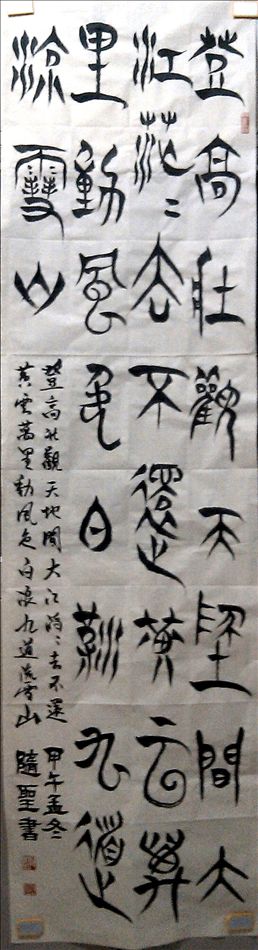 登高壯觀天地間大
江茫〻去不還黃雲萬
里動風色白波九道
流雪山
登高壯觀天地間大江茫〻去不還 甲午孟冬
黃雲萬里動風色白波九道流雪山 隨聖書